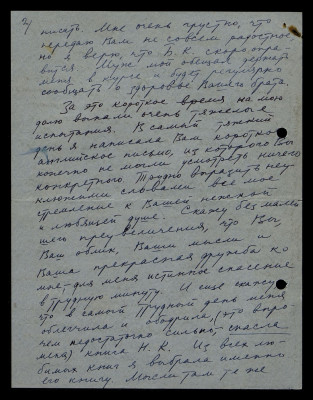 2)
писать. Мне очень грустно, что
передаю Вам не совсем радостное,
но я верю, что Б.К. скоро попра-
вится. Муж мой обещал держать
меня в курсе и будет регулярно
сообщать о здоровье Вашего брата.
За это короткое время на мою
долю выпали очень тяжелые
испытания. В самый тяжкий
день я написала Вам короткое
английское письмо, из которого Вы
конечно не могли усмотреть ничего
конкретного. Трудно выразить неу-
клюжими словами все мое
стремление к Вашей нежной
и любящей душе. Скажу без малей-
шего преувеличения, что Вы,
Ваш облик, Ваши мысли и
Ваша прекрасная дружба ко
мне – для меня истинное спасение
в трудную минуту. И еще скажу,
что в самый трудный день меня
облегчила и ободрила, (это впро
чем недостаточно сильно, – спасла
меня) книга Н.К. Из всех лю-
бимых книг я выбрала именно
его книгу. Мысли там те же